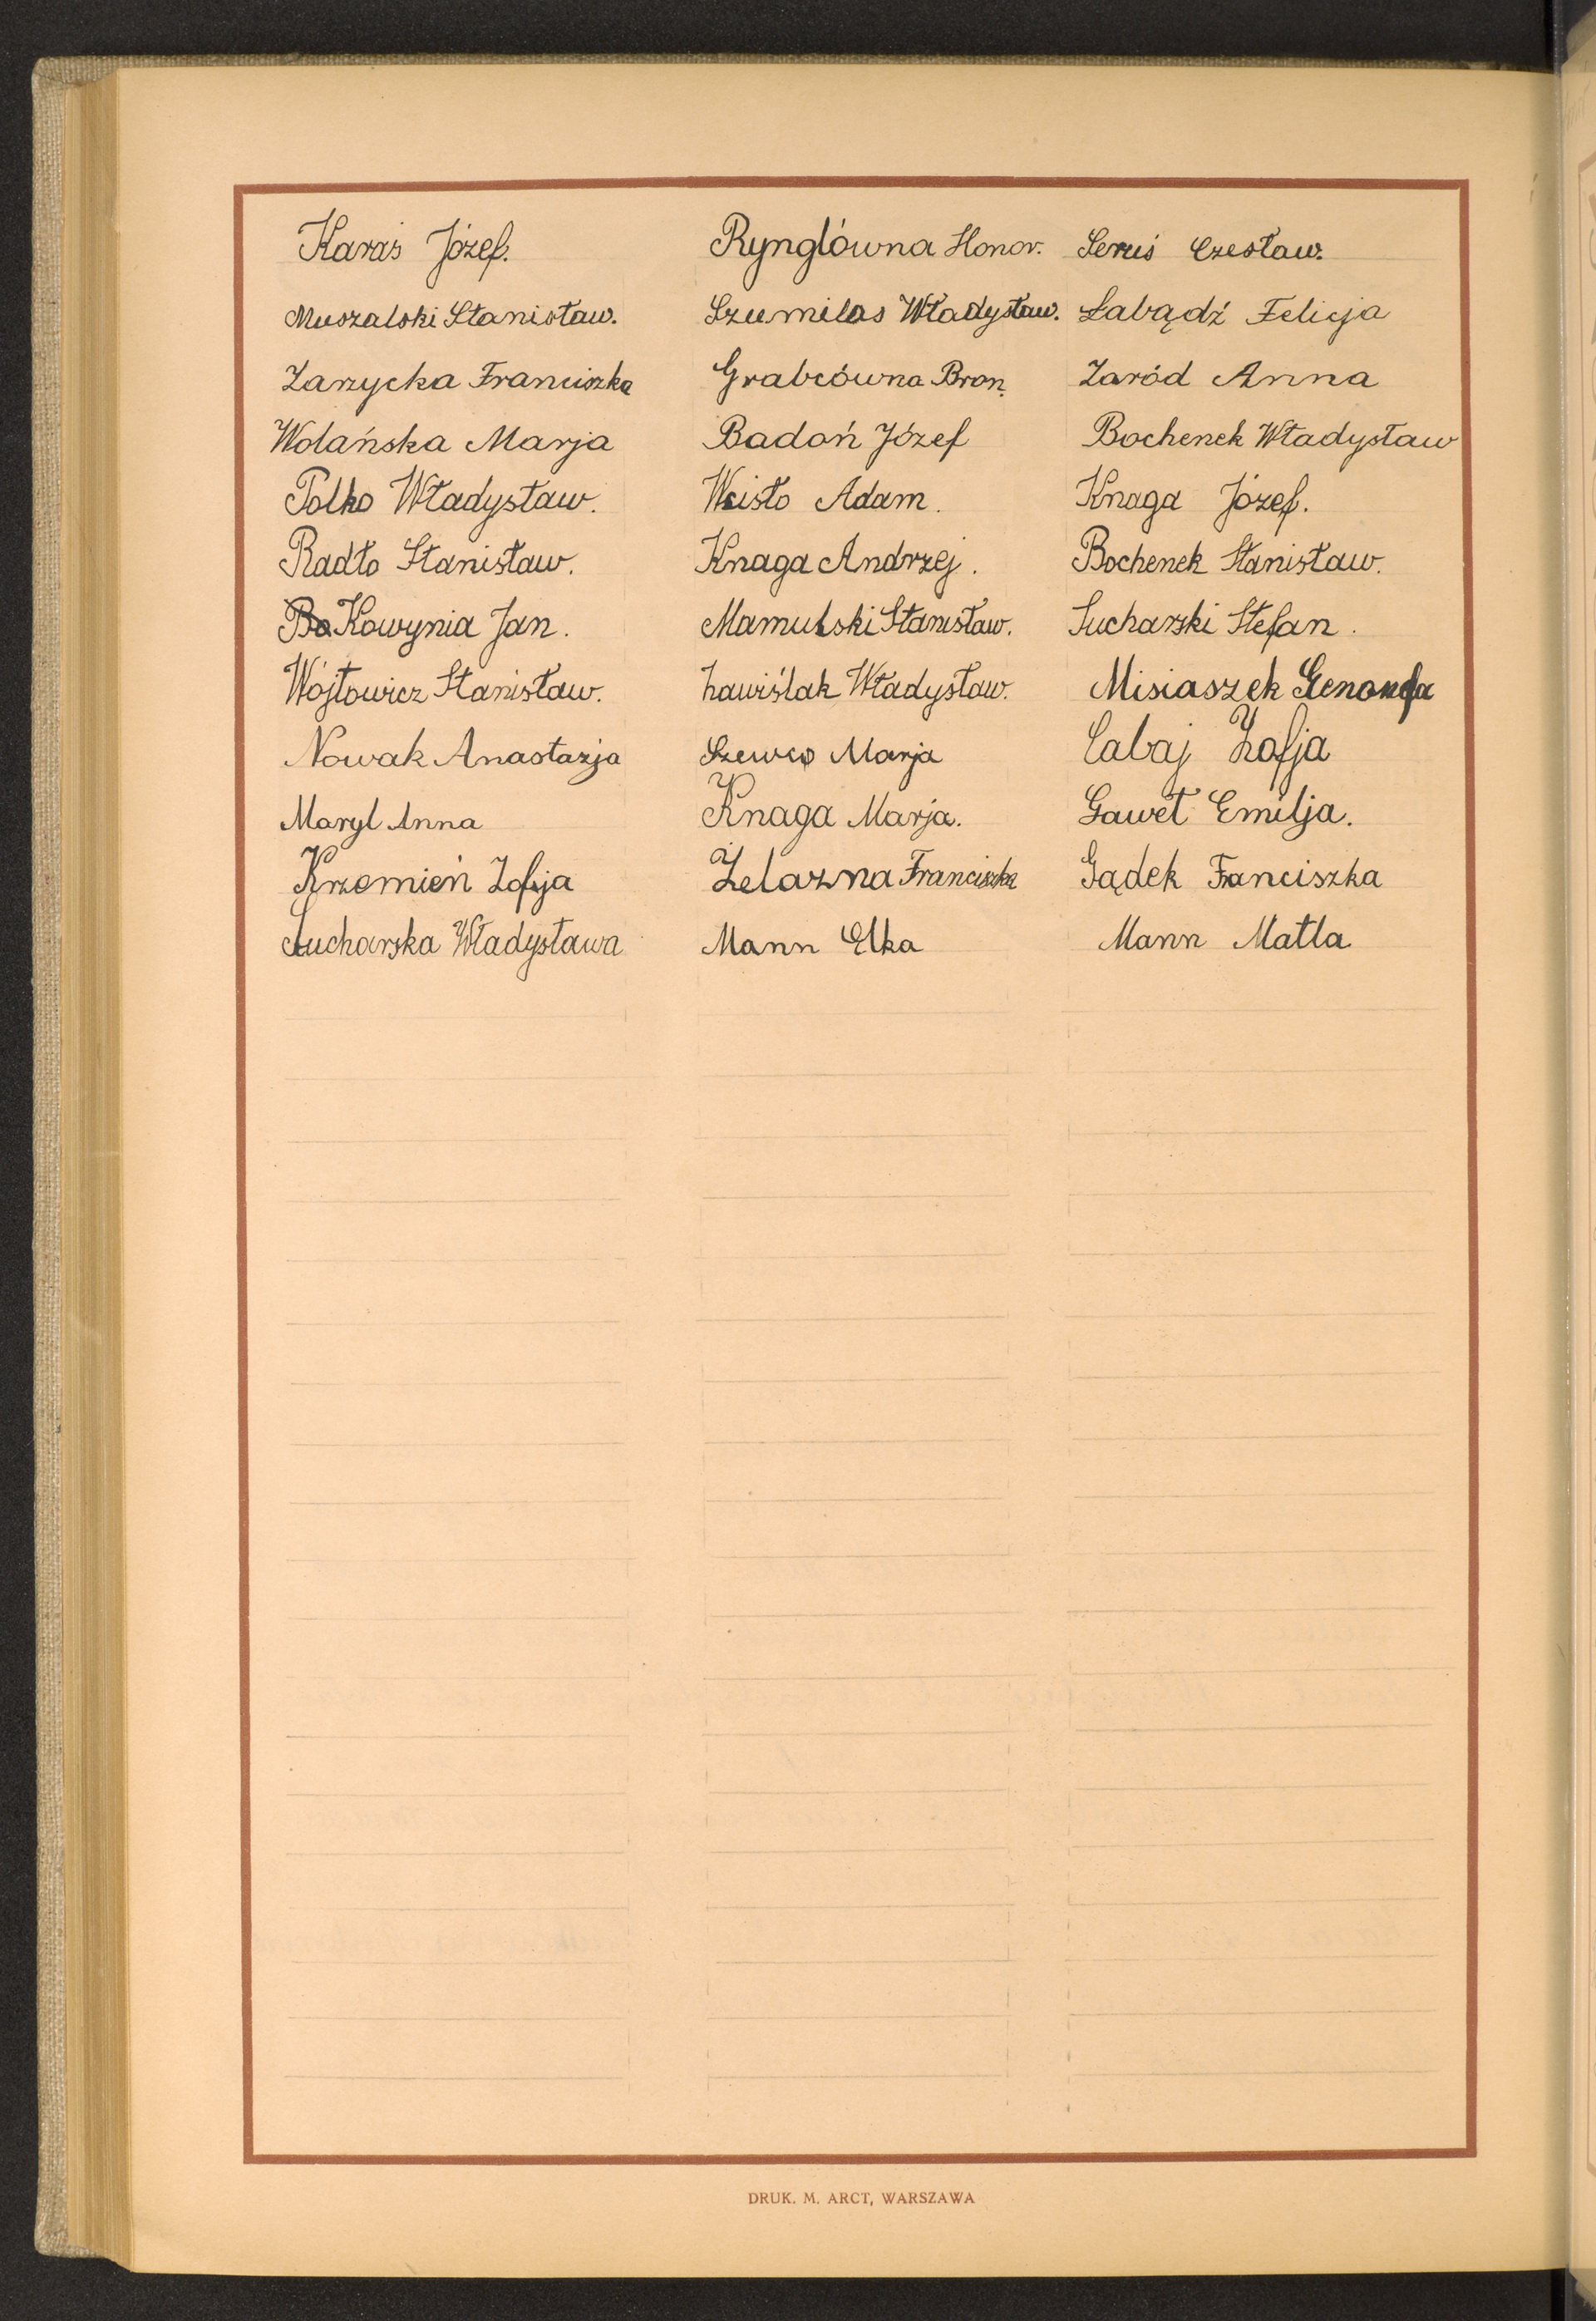 Karaś Józef.
Muszalski Stanisław.
Zarzycka Franciszka
Wolańska Marja
Polko Władysław.
Radło Stanisław.
Kowynia Jan.
Wójtowicz Stanisław.
Nowak Anastazja
Maryl Anna
Krzemień Zofja
Sucharska Władysława
Rynglówna Honor.
Szumilas Władysław.
Grabcówna Bron.
Badoń Józef
Wcisło Adam.
Knaga Andrzej.
Mamulski Stanisław.
Ławiślak Władysław.
Szewco Marja
Knaga Marja.
Żelazna Franciszka
Mann Elka
Seruś Czesław.
Łabądź Felicja
Zaród Anna
Bochenek Władysław
Knaga Józef.
Bochenek Stanisław.
Sucharski Stefan.
Misiaszek
Cabaj Zofja
Gaweł Emilja.
Gądek Franciszka
Mann Matla
DRUK. M. ARCT, WARSZAWA